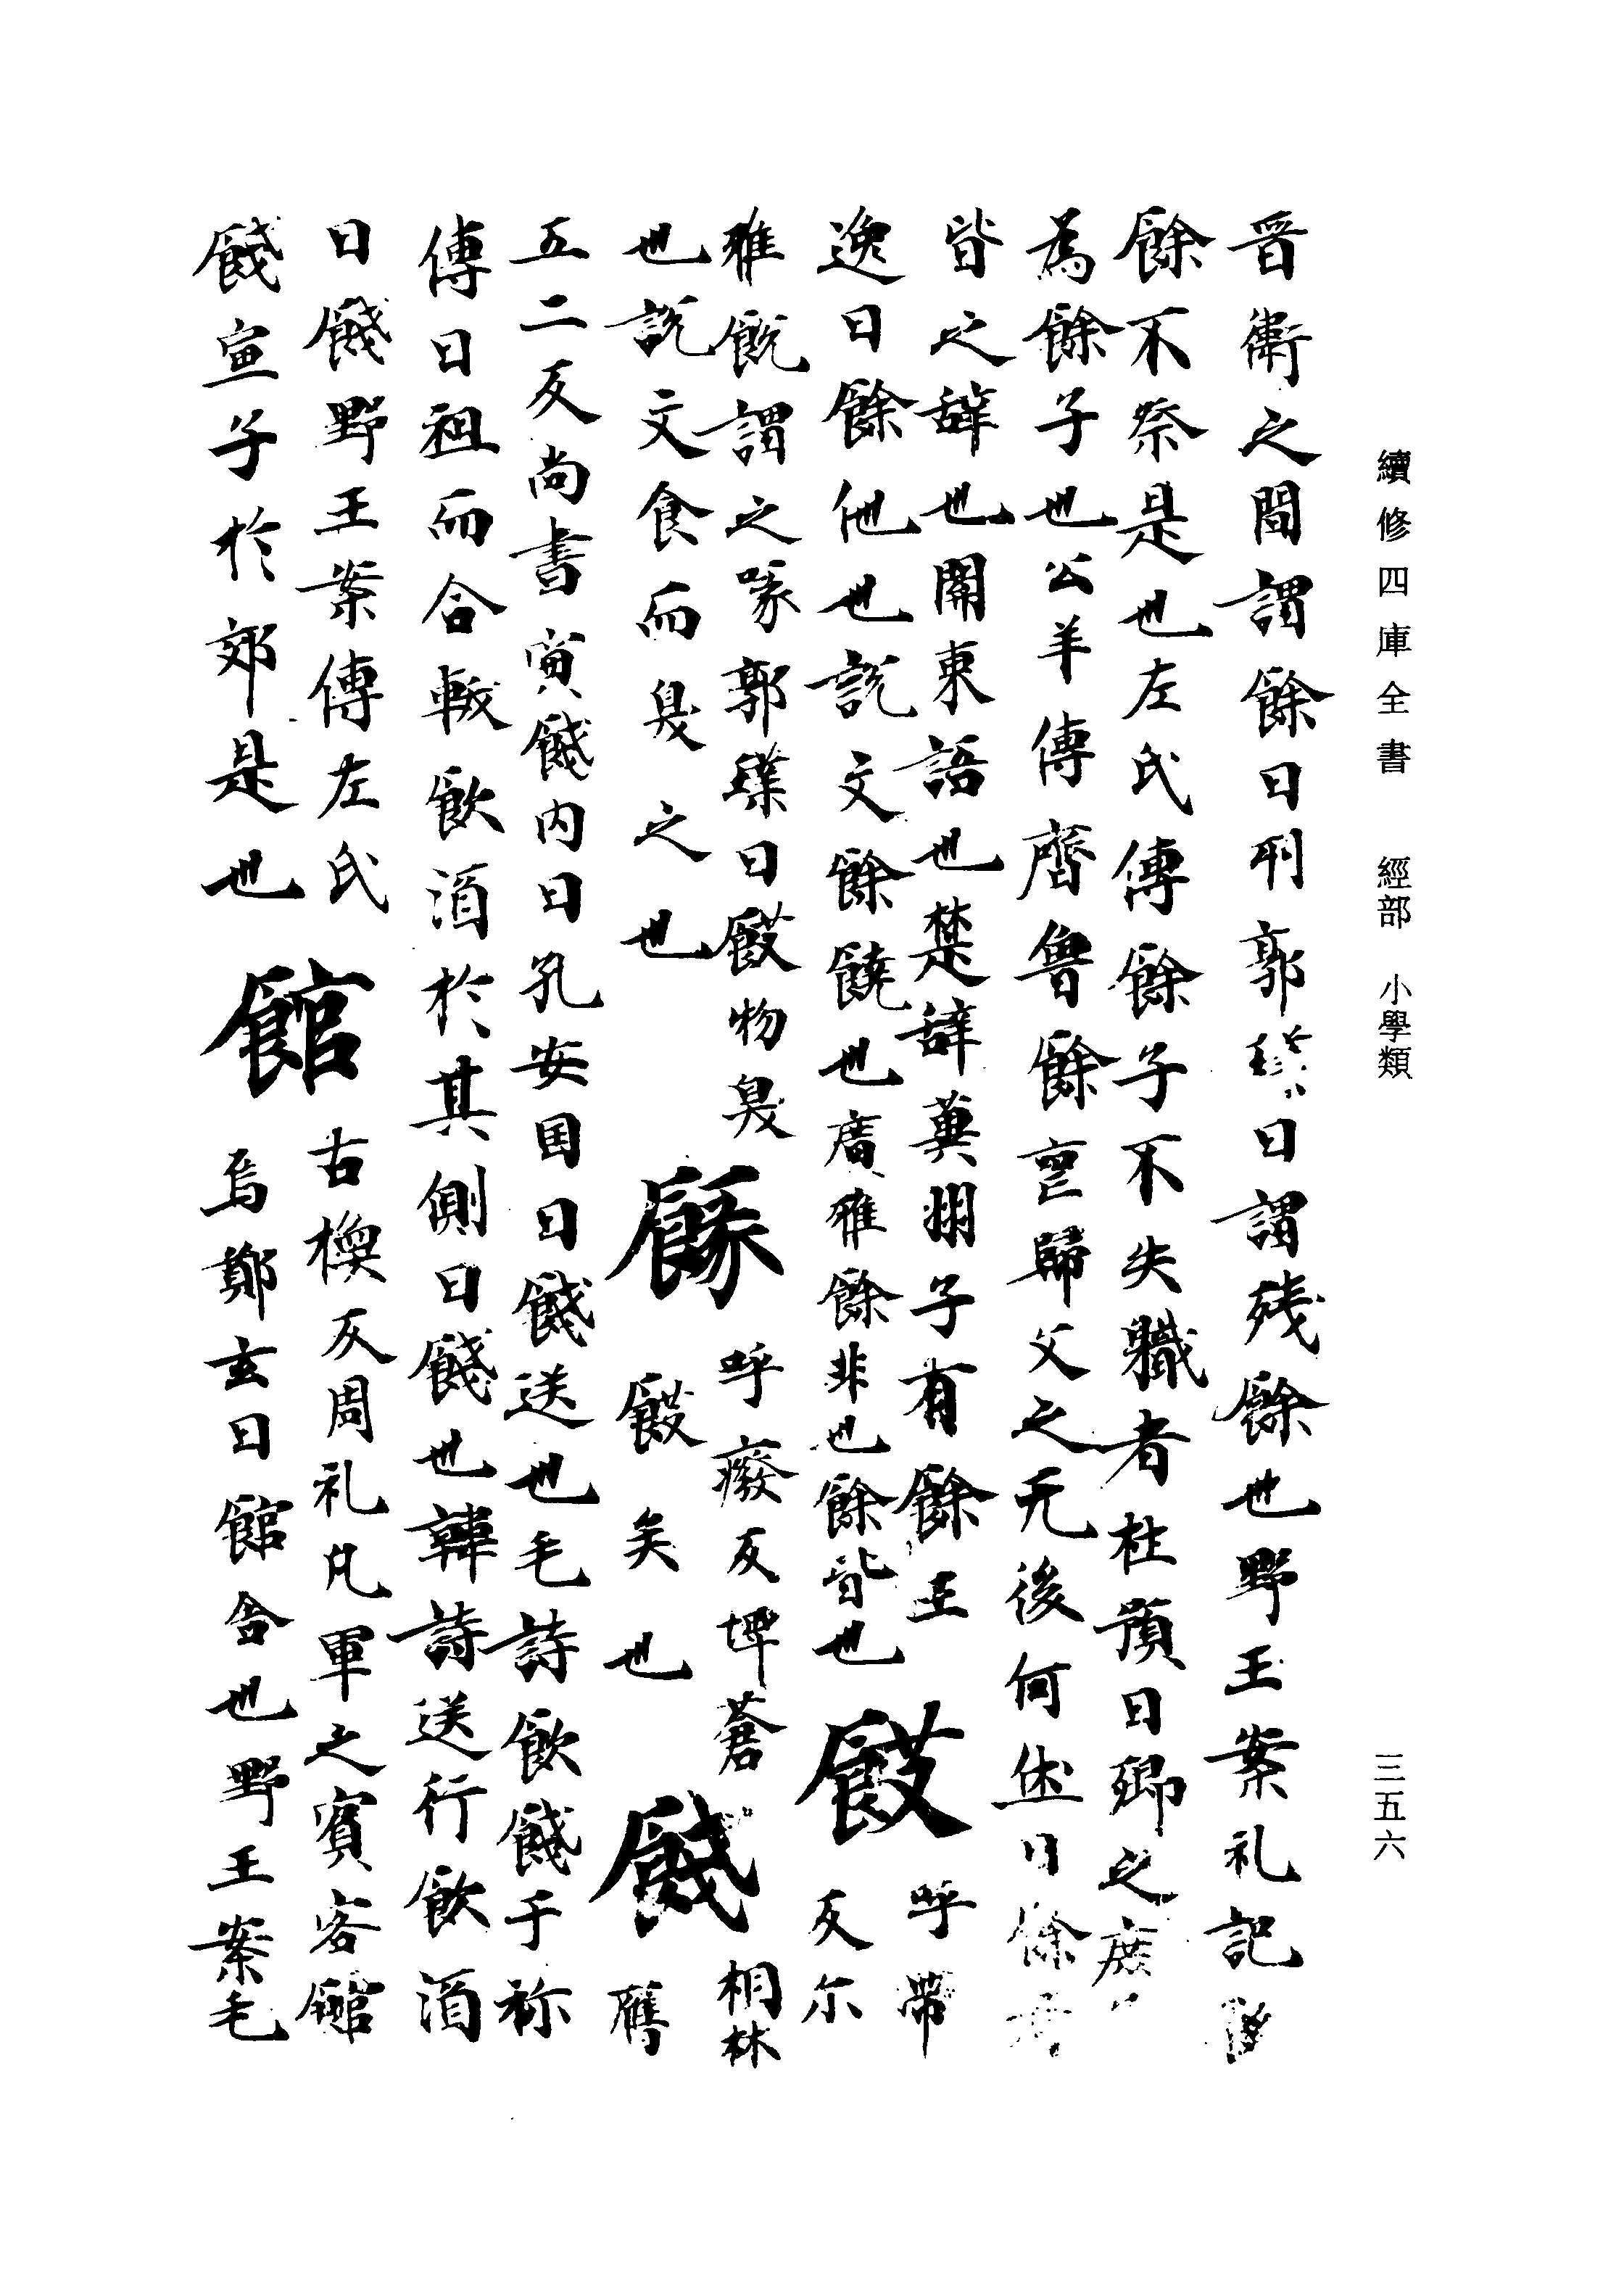 續修四庫全書　經部　小學類
三五六
晉衛之間謂餘曰列郭璞曰謂殘餘也野王案礼記
餘不祭是也左氏傳餘子不失軄者杜預曰卿之庶
為餘子也公羊傳齊魯餘歸父之无後何休曰餘
皆之辝也關東語也楚辝蓂子有餘王
逸曰餘他也説文餘饒也廣雅餘非也餘皆也
餀
呼帶
反尓
雅餀謂之喙郭璞曰餀物臭
也説文食而臭之也
餯
呼癈反埤蒼
餀矣也
餞
桐林
膺
五二反尚書寅餞内日孔安国曰餞送也毛詩飲餞于祢
傳曰祖而舍軷飲酒於其側曰餞也韓詩送行飲酒
曰餞野王案傳左氏
餞宣子於郊是也
館
古換反周礼凢軍之賓客館
焉鄭玄曰館舍也野王案毛